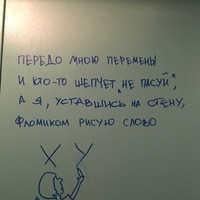 ПЕРЕДО МНОЮ ПЕРЕМЕНЫ
И КТО-ТО ШЕПЧЕТ „НЕ ПАСУЙ“,
А Я, УСТАВШИСЬ НА СТЕНУ,
ФЛОМИКОМ РИСУЮ СЛОВО
Х У